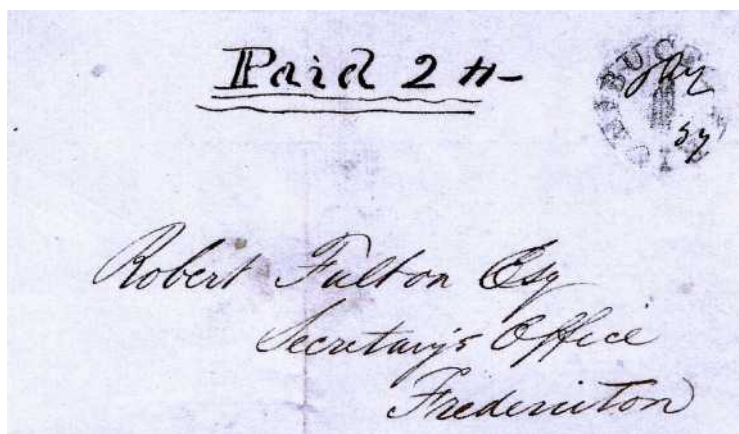 Paid 2 H-
37
Robert Fulton Esq
Secretary's Office
Fredericton